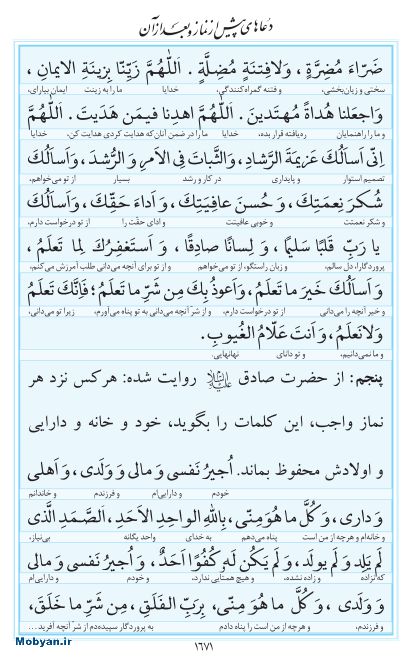 دعاهای پیش از نماز و بعد از آن
ضَرّاءَ مُضِرَّةٍ ، وَلافِتنَةٍ مُضِلَّةٍ . اَللّٰهُمَّ زَيِّنّا بِزينَةِ الايمانِ ،
سختی و زیان‌بخشی، و فتنه گمراه‌کنندگی، خدایا ما را به زینت ایمان بیارای،
وَاجعَلنا هُداةً مُهتَدينَ . اَللّٰهُمَّ اهدِنا فيمَن هَدَيتَ . اَللّٰهُمَّ
و ما را راهنمایان ره‌یافته قرار بده، خدایا ما را در ضمن آنان که هدایت کردی هدایت کن، خدایا
اِنّی اَسأَلُكَ عَزيمَةَ الرَّشادِ، وَالثَّباتَ فِی الاَمرِ وَ الرُّشدَ، وَاَسأَلُكَ
تصمیم استوار و پایداری در کار و رشد بسیار از تو می‌خواهم،
شُكرَ نِعمَتِكَ ، وَ حُسنَ عافِيَتِكَ ، وَ اَداءَ حَقِّكَ ، وَاَسأَلُكَ
و شکر نعمتت و خوبی عافیتت و ادای حقّت را از تو درخواست دارم،
يا رَبِّ قَلبًا سَليمًا ، وَ لِسانًا صادِقًا ، وَ اَستَغفِرُكَ لِما تَعلَمُ ،
پروردگارا، دل سالم، و زبان راستگو، از تو می‌خواهم و از تو برای آنچه می‌دانی طلب آمرزش می‌کنم،
وَ اَسأَلُكَ خَيرَ ما تَعلَمُ ، وَاَعوذُ بِكَ مِن شَرِّ ما تَعلَمُ ؛ فَاِنَّكَ تَعلَمُ
و خیر آنچه را می‌دانی از تو درخواست دارم، و از شرّ آنچه می‌دانی به تو پناه می‌آورم، زیرا تو می‌دانی،
وَلانَعلَمُ ، وَاَنتَ عَلّامُ الغُيوبِ.
و ما نمی‌دانیم، و تو دانای نهانهایی.
پنجم: از حضرت صادق علیه‌السلام روایت شده: هرکس نزد هر
نماز واجب، این کلمات را بگوید، خود و خانه و دارایی
و اولادش محفوظ بماند. اُجيرُ نَفسی وَ مالی وَ وَلَدی، وَ اَهلی
خودم و دارایی‌ام و فرزندم و خاندانم
وَ داری، وَ كُلَّ ما هُوَ مِنّی، بِاللّٰهِ الواحِدِ الاَحَدِ، اَلصَّمَدِ الَّذی
و خانه‌ام و هرچه از من است پناه می‌دهم به خدای واحد یگانه بی‌نیاز،
لَم يَلِد وَ لَم يولَد، وَ لَم يَكُن لَهُ كُفُوًا اَحَدٌ، وَ اُجيرُ نَفسی وَ مالی
که نزاده و زاده نشده، و هیچ همتایی ندارد، و خودم و دارایی‌ام
وَ وَلَدی، وَ كُلَّ ما هُوَ مِنّی، بِرَبِّ الفَلَقِ، مِن شَرِّ ما خَلَقَ،
و فرزندم، و هرچه از من است را پناه دادم به پروردگار سپیده‌دم از شر آنچه آفرید...
۱۶۷۱
Mobyan.ir